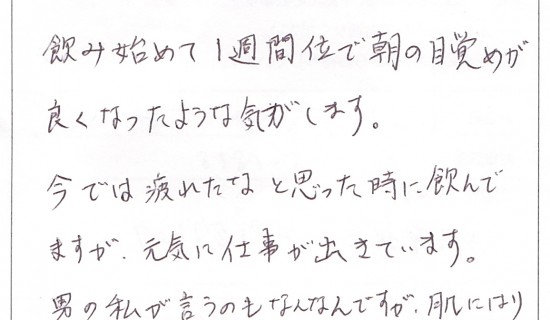 飲み始めて1週間位で朝の目覚めが
良くなったような気がします。
今では疲れたなと思った時に飲んで
ますが、元気に仕事が出きています。
男の私が言うのもなんなんですが、肌にはり